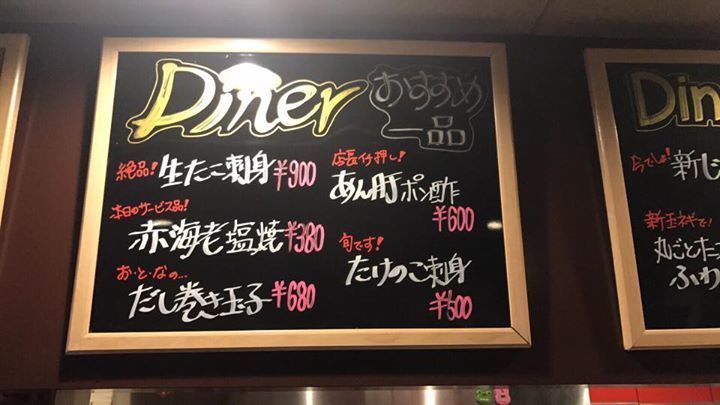 Diner
おすすめ
一品
絶品!
生たこ刺身 ¥900
本日のサービス品!
赤海老塩焼 ¥380
お・と・なの…
だし巻き玉子 ¥680
店長イチ押し!
あん肝ポン酢
¥600
旬です!
たけのこ刺身
¥500
Din
今でしょ!
新じ
新玉ネギで!
丸ごとた
ふわ